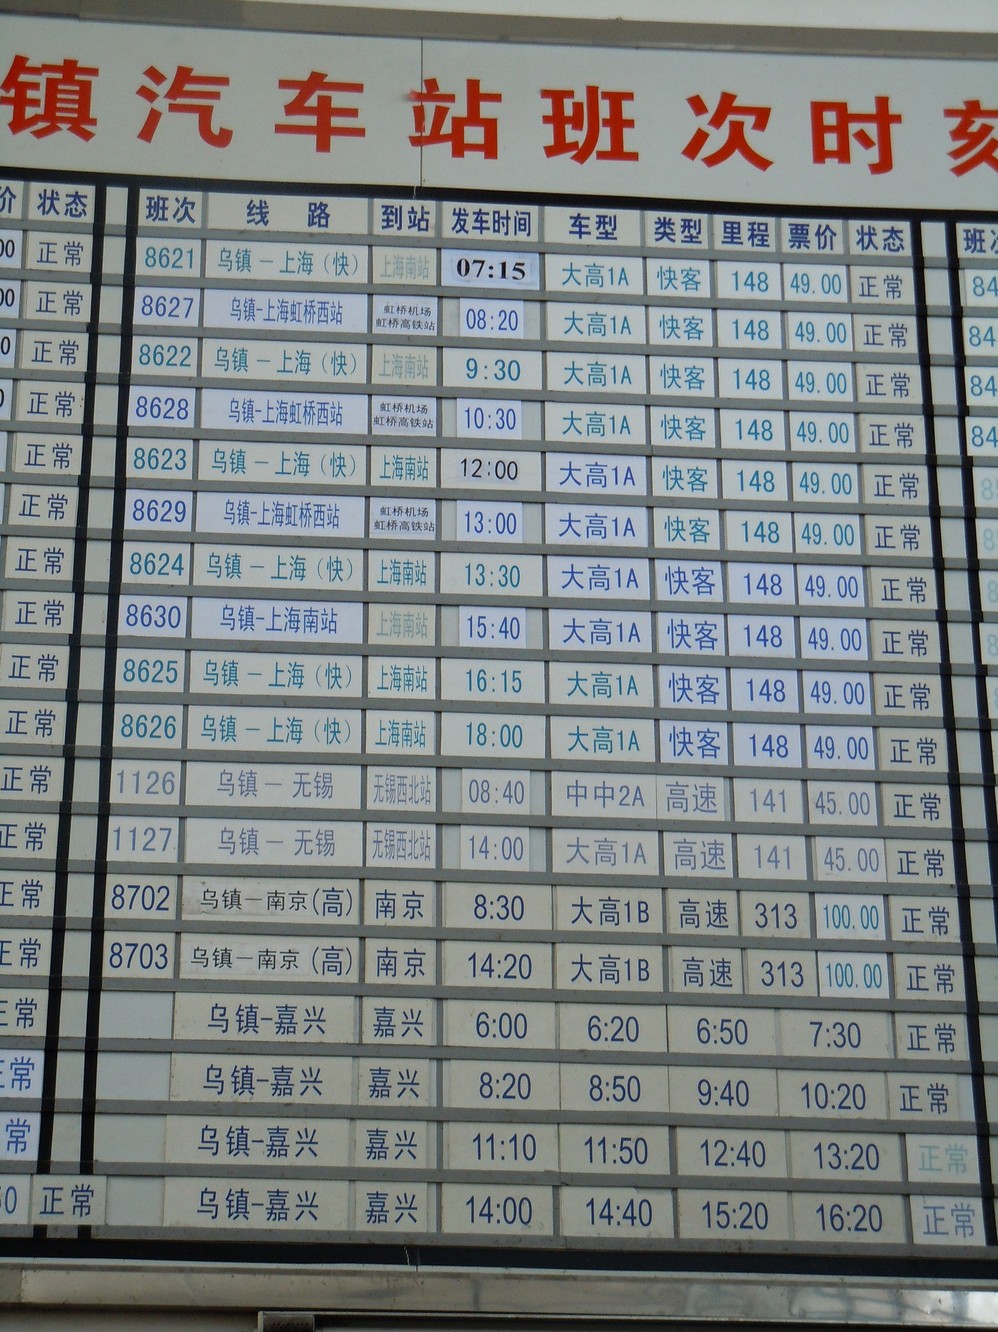 镇汽车站班次时刻
价 状态 班次 线路 到站 发车时间 车型 类型 里程 票价 状态 班次
00 正常 8621 乌镇－上海（快） 上海南站 07:15 大高1A 快客 148 49.00 正常 84
00 正常 8627 乌镇-上海虹桥西站 虹桥机场 虹桥高铁站 08:20 大高1A 快客 148 49.00 正常 84
0 正常 8622 乌镇－上海（快） 上海南站 9:30 大高1A 快客 148 49.00 正常 84
正常 8628 乌镇-上海虹桥西站 虹桥机场 虹桥高铁站 10:30 大高1A 快客 148 49.00 正常 84
正常 8623 乌镇－上海（快） 上海南站 12:00 大高1A 快客 148 49.00 正常 8
正常 8629 乌镇-上海虹桥西站 虹桥机场 虹桥高铁站 13:00 大高1A 快客 148 49.00 正常 8
正常 8624 乌镇－上海（快） 上海南站 13:30 大高1A 快客 148 49.00 正常 8
正常 8630 乌镇-上海南站 上海南站 15:40 大高1A 快客 148 49.00 正常 8
正常 8625 乌镇－上海（快） 上海南站 16:15 大高1A 快客 148 49.00 正常
正常 8626 乌镇－上海（快） 上海南站 18:00 大高1A 快客 148 49.00 正常
正常 1126 乌镇－无锡 无锡西北站 08:40 中中2A 高速 141 45.00 正常
正常 1127 乌镇－无锡 无锡西北站 14:00 大高1A 高速 141 45.00 正常
正常 8702 乌镇－南京(高) 南京 8:30 大高1B 高速 313 100.00 正常
正常 8703 乌镇－南京(高) 南京 14:20 大高1B 高速 313 100.00 正常
正常 乌镇-嘉兴 嘉兴 6:00 6:20 6:50 7:30 正常
正常 乌镇-嘉兴 嘉兴 8:20 8:50 9:40 10:20 正常
常 乌镇-嘉兴 嘉兴 11:10 11:50 12:40 13:20 正常
0 正常 乌镇-嘉兴 嘉兴 14:00 14:40 15:20 16:20 正常